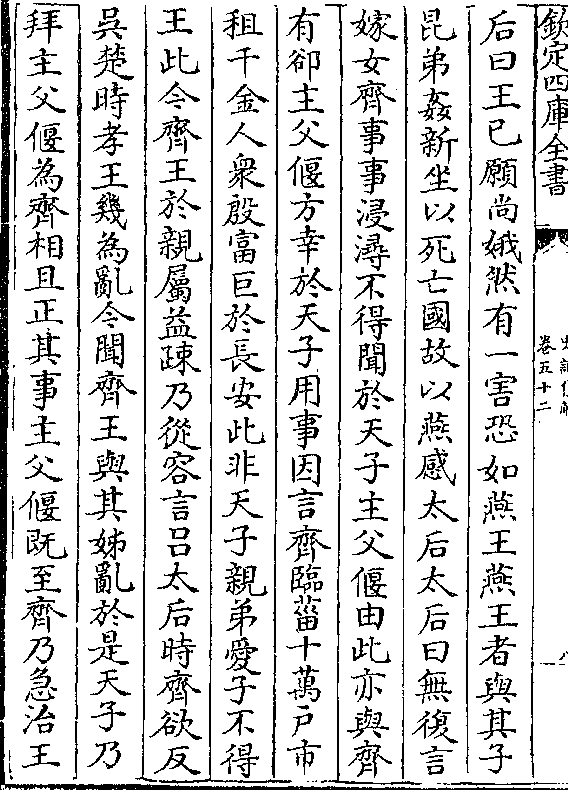 欽定四庫全書
卷五十二
后曰王已願尚娥然有一害恐如燕王燕王者與其子
昆弟姦新坐以死亡國故以燕感太后太后曰無復言
嫁女齊事事浸潯不得聞於天子主父偃由此亦與齊
有郤主父偃方幸於天子用事因言齊臨菑十萬戸市
租千金人衆殷富巨於長安此非天子親弟愛子不得
王此今齊王於親屬益疎乃從容言吕太后時齊欲反
吳楚時孝王幾為亂今聞齊王與其姊亂於是天子乃
拜主父偃為齊相且正其事主父偃既至齊乃急治王